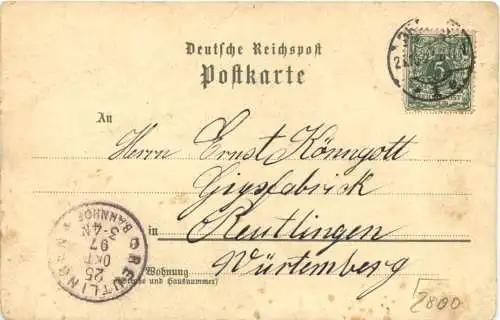 Deutsche Reichspost
Postkarte
An
Herrn Ernst Könngott
Gypsfabrick
in Reutlingen
Würtemberg
Wohnung
(Straße und Hausnummer)
REUTLINGEN
BAHNHOF
3-4N
97
OKT
25
5
2800